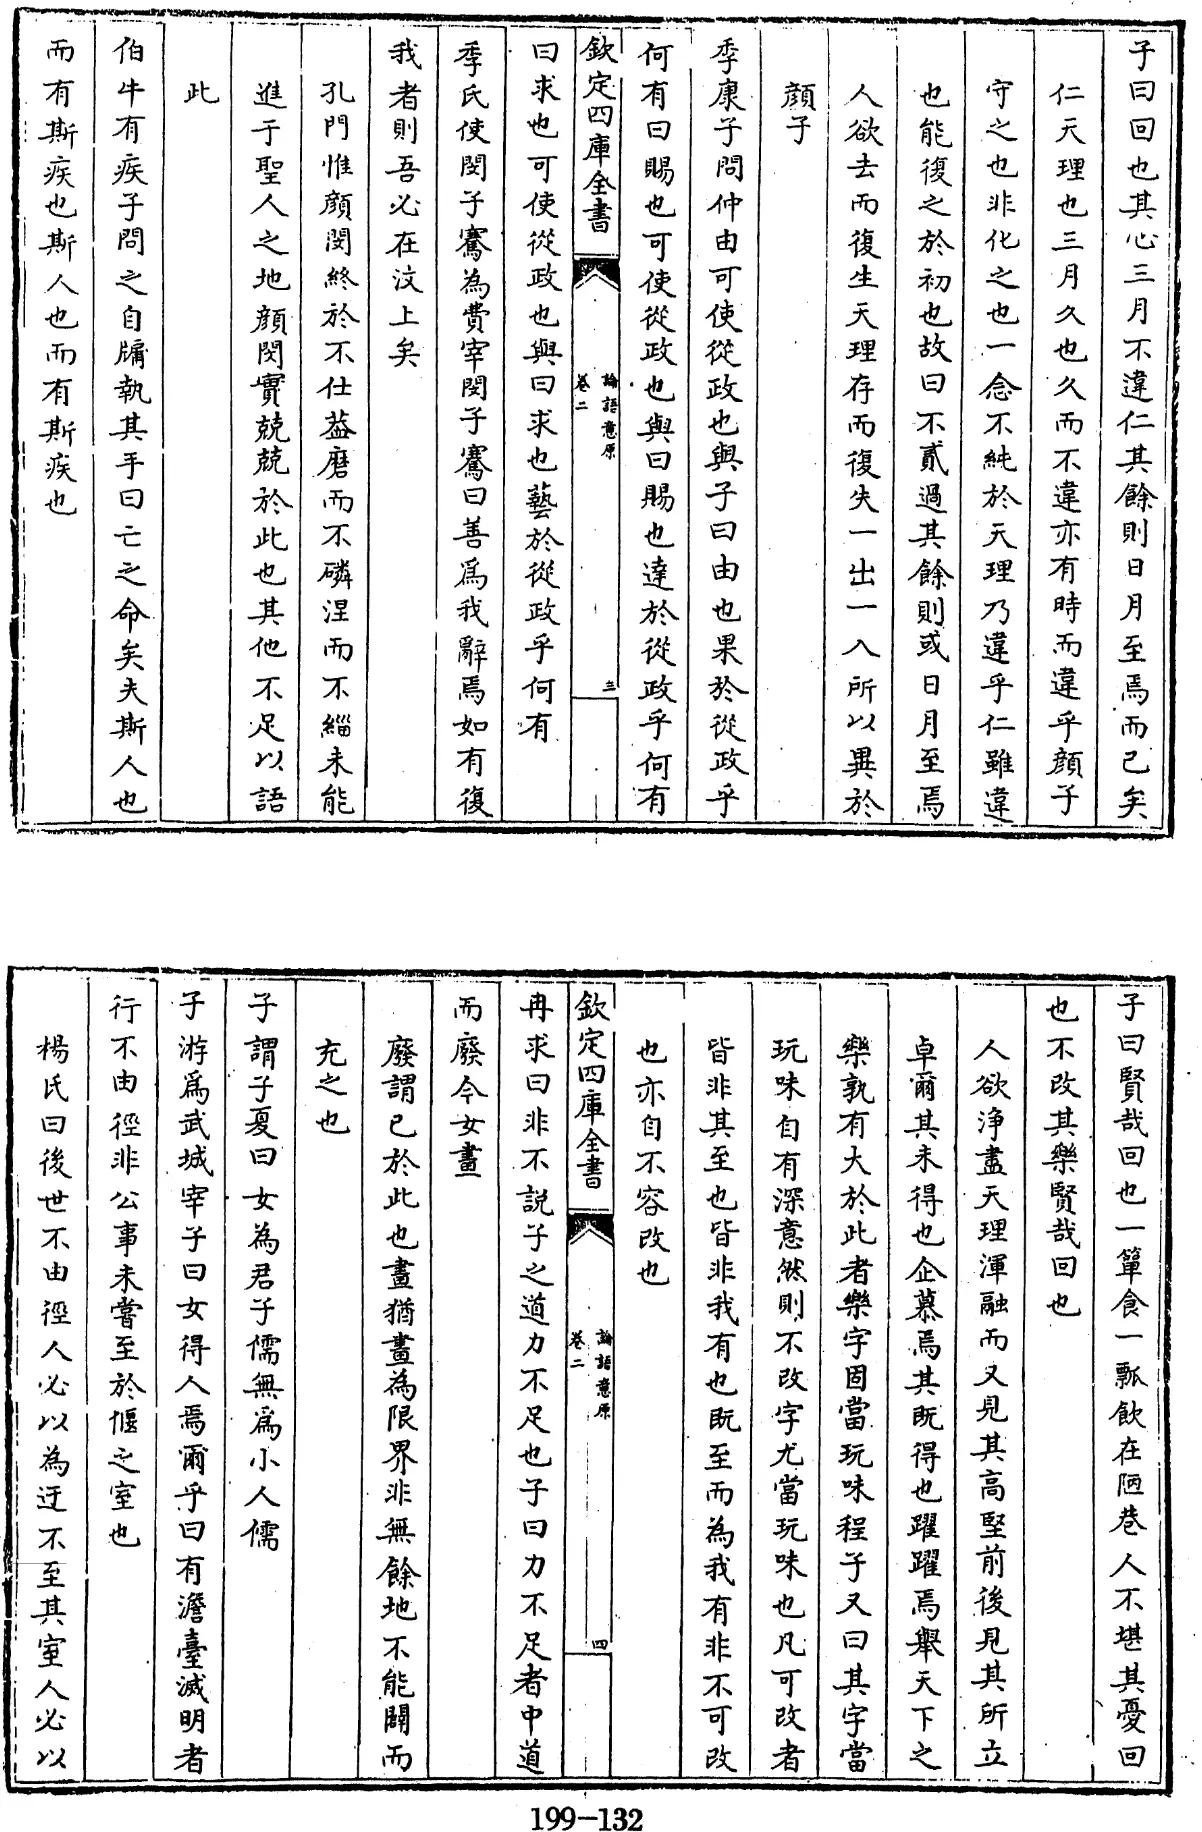 子曰回也其心三月不違仁其餘則日月至焉而已矣
仁天理也三月久也久而不違亦有時而違乎顔子
守之也非化之也一念不純於天理乃違乎仁雖違
也能復之於初也故曰不貳過其餘則或日月至焉
人欲去而復生天理存而復失一出一入所以異於
顔子
季康子問仲由可使從政也與子曰由也果於從政乎
何有曰賜也可使從政也與曰賜也達於從政乎何有
欽定四庫全書
論語意原
卷二
三
曰求也可使從政也與曰求也藝於從政乎何有
季氏使閔子騫為費宰閔子騫曰善爲我辭焉如有復
我者則吾必在汶上矣
孔門惟顔閔終於不仕葢磨而不磷涅而不緇未能
進于聖人之地顔閔實兢兢於此也其他不足以語
此
伯牛有疾子問之自牖執其手曰亡之命矣夫斯人也
而有斯疾也斯人也而有斯疾也
子曰賢哉回也一簞食一瓢飲在陋巷人不堪其憂回
也不改其樂賢哉回也
人欲浄盡天理渾融而又見其高堅前後見其所立
卓爾其未得也企慕焉其既得也躍躍焉舉天下之
樂孰有大於此者樂字固當玩味程子又曰其字當
玩味自有深意然則不改字尤當玩味也凡可改者
皆非其至也皆非我有也既至而為我有非不可改
也亦自不容改也
欽定四庫全書
論語意原
卷二
四
冉求曰非不説子之道力不足也子曰力不足者中道
而廢今女畫
廢謂已於此也畫猶畫為限界非無餘地不能闢而
充之也
子謂子夏曰女為君子儒無爲小人儒
子游爲武城宰子曰女得人焉爾乎曰有澹臺滅明者
行不由徑非公事未嘗至於偃之室也
楊氏曰後世不由徑人必以為迂不至其室人必以
199-132